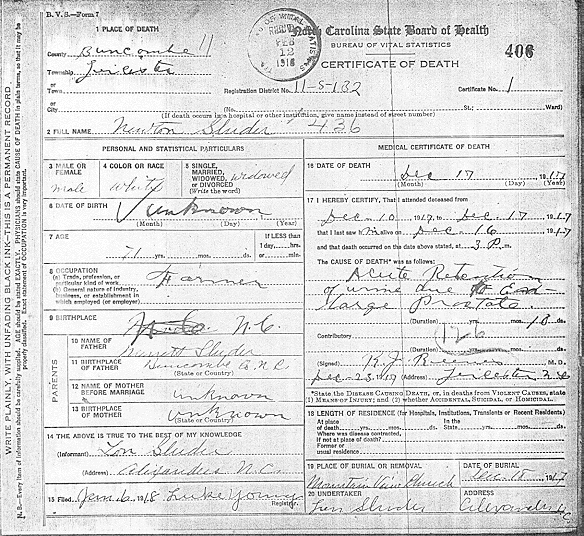 B. V. S.—Form 7
1 PLACE OF DEATH
County Buncombe 11
Township Leicester
or
Town
or
City
BUREAU OF VITAL STATISTICS
REC'D
FEB
12
1918
North Carolina State Board of Health
BUREAU OF VITAL STATISTICS
CERTIFICATE OF DEATH
406
Registration District No. 11-5-132 Certificate No. 1
(No. St.; Ward)
(If death occurs in a hospital or other institution, give name instead of street number)
2 FULL NAME Newton Sluder 436
PERSONAL AND STATISTICAL PARTICULARS
3 MALE OR FEMALE male
4 COLOR OR RACE white
5 SINGLE, MARRIED, WIDOWED, OR DIVORCED (Write the word) widowed
6 DATE OF BIRTH unknown
(Month) (Day) (Year)
7 AGE 71 yrs. mos. ds.
If LESS than
1 day, hrs.
or min.
8 OCCUPATION Farmer
(a) Trade, profession, or particular kind of work
(b) General nature of industry, business, or establishment in which employed (or employer)
9 BIRTHPLACE N.C.
PARENTS
10 NAME OF FATHER Sluder
11 BIRTHPLACE OF FATHER Buncombe Co. N.C.
(State or Country)
12 NAME OF MOTHER BEFORE MARRIAGE unknown
13 BIRTHPLACE OF MOTHER unknown
(State or Country)
14 THE ABOVE IS TRUE TO THE BEST OF MY KNOWLEDGE
(Informant) Sluder
(Address) Alexander N.C.
15 Filed Jan 6 1918 Luke Young
Registrar.
MEDICAL CERTIFICATE OF DEATH
16 DATE OF DEATH Dec 17 1917
(Month) (Day) (Year)
17 I HEREBY CERTIFY, That I attended deceased from
Dec-10 1917 to Dec-17 1917
that I last saw him alive on Dec-16 1917
and that death occurred on the date above stated, at 3 P.m.
The CAUSE OF DEATH* was as follows:
Acute Retention
of urine due to En-
large Prostate.
(Duration) yrs. mos. 18 ds.
Contributory 126
(Duration) yrs. mos. ds.
(Signed) M.D.
Dec-23 1917 (Address) Leicester, N.C.
*State the DISEASE CAUSING DEATH, or, in deaths from VIOLENT CAUSES, state
(1) MEANS OF INJURY; and (2) whether ACCIDENTAL, SUICIDAL, or HOMICIDAL.
18 LENGTH OF RESIDENCE (for Hospitals, Institutions, Transients or Recent Residents)
At place of death yrs. mos. ds. In the State yrs. mos. ds.
Where was disease contracted, if not at place of death?
Former or usual residence
19 PLACE OF BURIAL OR REMOVAL Mountain View Church
DATE OF BURIAL Dec 18 1917
20 UNDERTAKER Sluder
ADDRESS Alexander N.C.
WRITE PLAINLY, WITH UNFADING BLACK INK—THIS IS A PERMANENT RECORD.
N. B.—Every item of information should be carefully supplied. AGE should be stated EXACTLY. PHYSICIANS should state CAUSE OF DEATH in plain terms, so that it may be properly classified. Exact statement of OCCUPATION is very important.